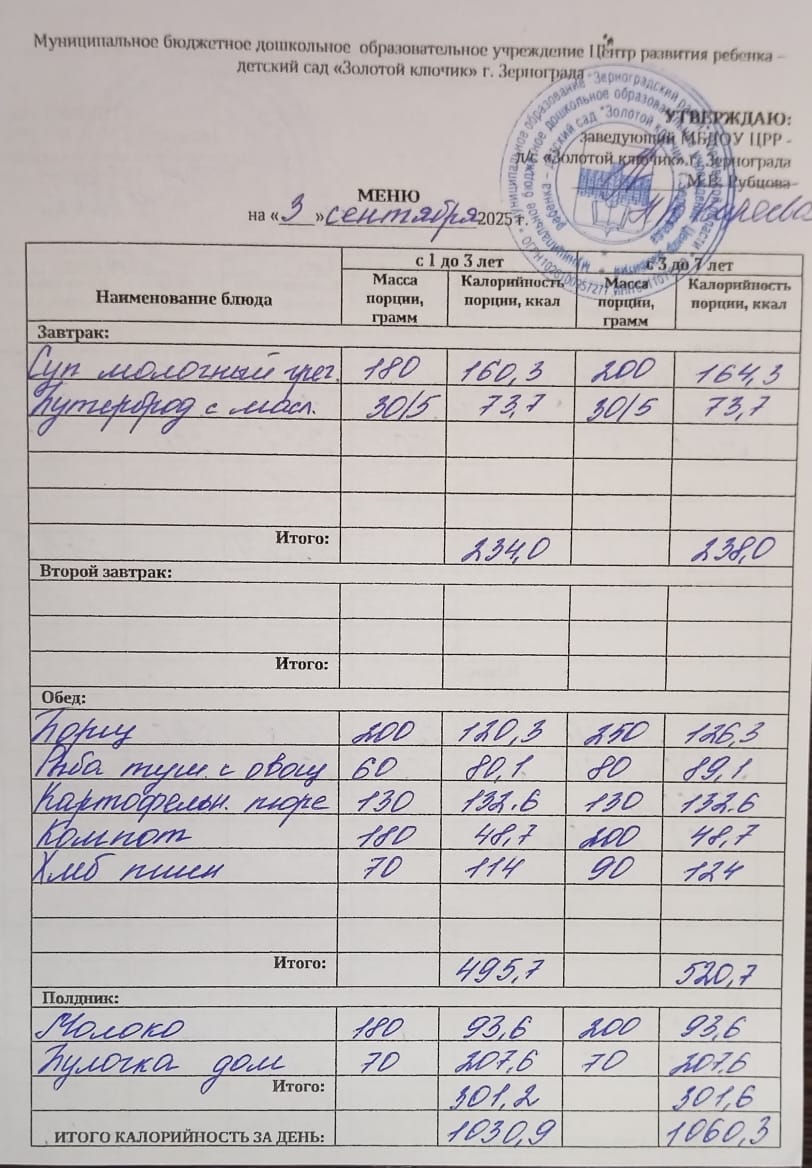 Муниципальное бюджетное дошкольное образовательное учреждение Центр развития ребенка –
детский сад «Золотой ключик» г. Зернограда
УТВЕРЖДАЮ:
заведующий МБДОУ ЦРР -
д/с «Золотой ключик» г. Зернограда
М.В. Рубцова
МЕНЮ
на «3» сентября 2025 г.
Наименование блюда с 1 до 3 лет с 3 до 7 лет
Масса порции, грамм Калорийность порции, ккал Масса порции, грамм Калорийность порции, ккал
Завтрак:
Суп молочный греч. 180 160,3 200 164,3
Бутерброд с масл. 30/5 73,7 30/5 73,7
Итого: 234,0 238,0
Второй завтрак:
Итого:
Обед:
Борщ 200 120,3 250 126,3
Рыба туш. с овощ 60 80,1 80 89,1
Картофельн. пюре 130 132.6 130 132.6
Компот 180 48,7 200 48,7
Хлеб пшен 70 114 90 124
Итого: 495,7 520,7
Полдник:
Молоко 180 93,6 200 93,6
Булочка дом 70 207,6 70 207,6
Итого: 301,2 301,6
ИТОГО КАЛОРИЙНОСТЬ ЗА ДЕНЬ: 1030,9 1060,3